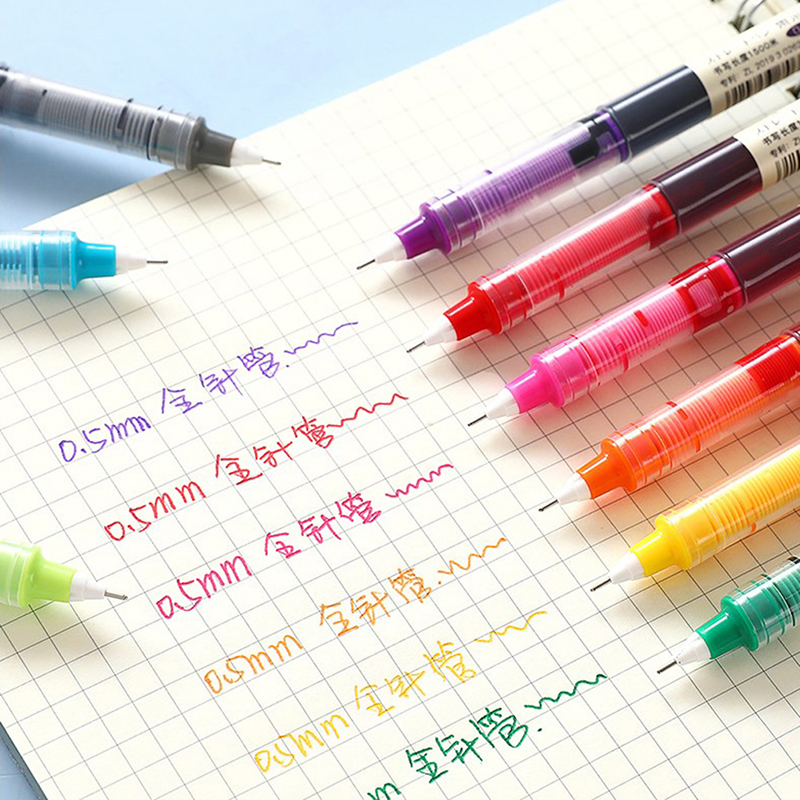 书写长度1500米
专利：ZL 2019 3 026
书写长度
专利：Z
0.5mm 全针管
0.5mm 全针管
0.5mm 全针管
0.5mm 全针管
0.5mm 全针管
m 全针管